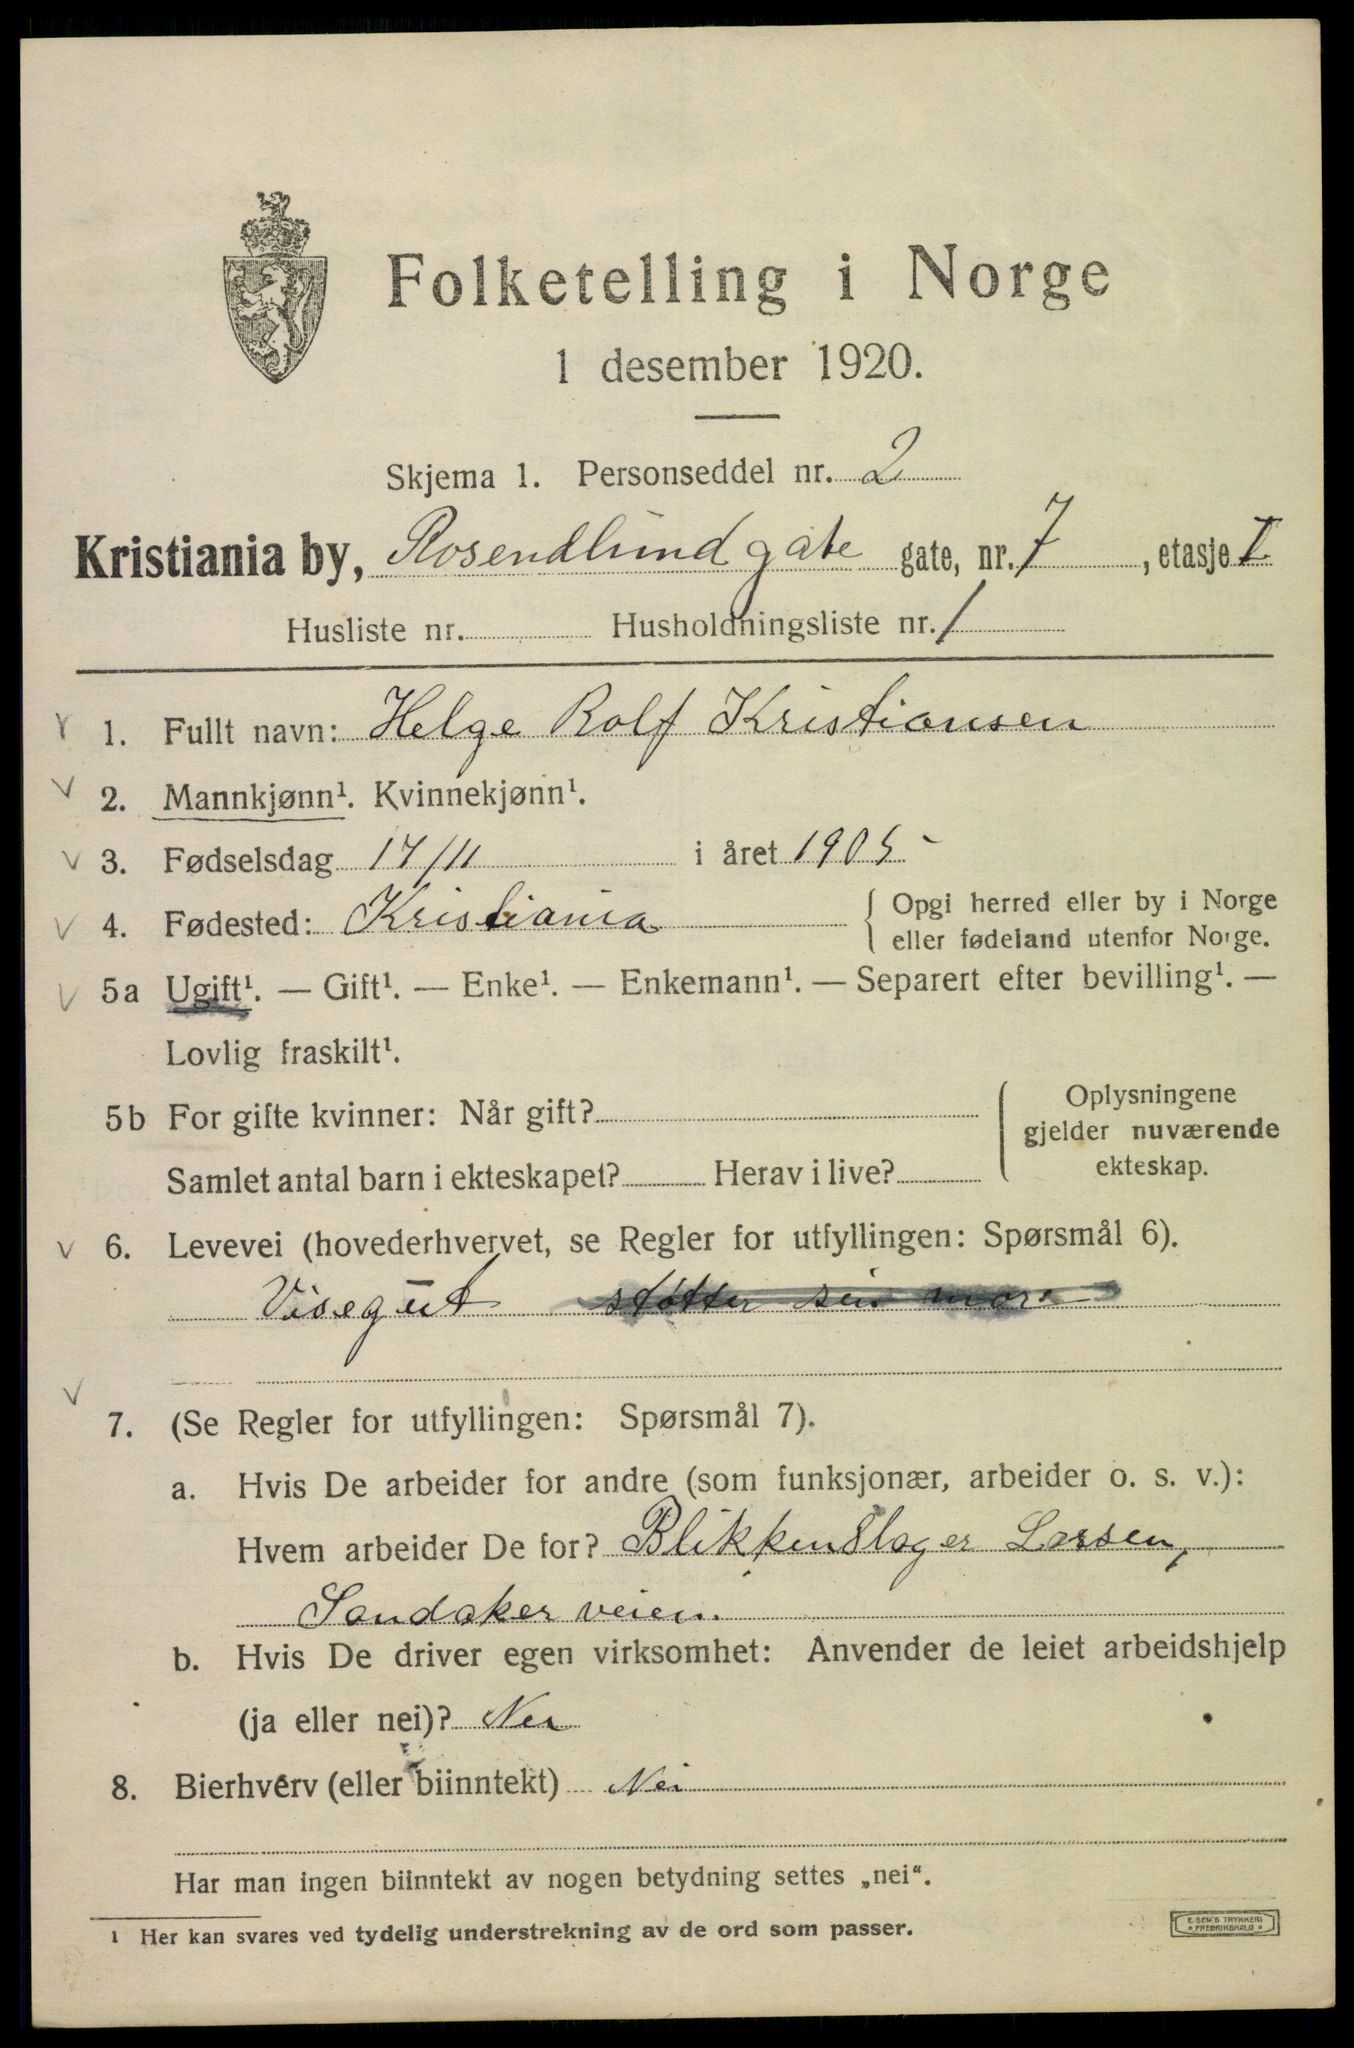 Folketelling i Norge
1 desember 1920.
Skjema 1. Personseddel nr. 2
Kristiania by, Rosendlundgate gate, nr. 7, etasje I
Husliste nr. Husholdningsliste nr. 1
1. Fullt navn: Helge Rolf Kristiansen
2. Mannkjønn¹. Kvinnekjønn¹.
3. Fødselsdag 17/11 i året 1905
4. Fødested: Kristiania
Opgi herred eller by i Norge
eller fødeland utenfor Norge.
5a Ugift¹. — Gift¹. — Enke¹. — Enkemann¹. — Separert efter bevilling¹. —
Lovlig fraskilt¹.
5b For gifte kvinner: Når gift?
Samlet antal barn i ekteskapet? Herav i live?
Oplysningene
gjelder nuværende
ekteskap.
6. Levevei (hovederhvervet, se Regler for utfyllingen: Spørsmål 6).
Visegut støtter sin mor
7. (Se Regler for utfyllingen: Spørsmål 7).
a. Hvis De arbeider for andre (som funksjonær, arbeider o. s. v.):
Hvem arbeider De for? Blikkenslager Larsen,
Sandakerveien.
b. Hvis De driver egen virksomhet: Anvender de leiet arbeidshjelp
(ja eller nei)? Nei
8. Bierhverv (eller biinntekt) Nei
Har man ingen biinntekt av nogen betydning settes „nei“.
¹ Her kan svares ved tydelig understrekning av de ord som passer.
E. SEM'S TRYKKERI
FREDRIKSHALD